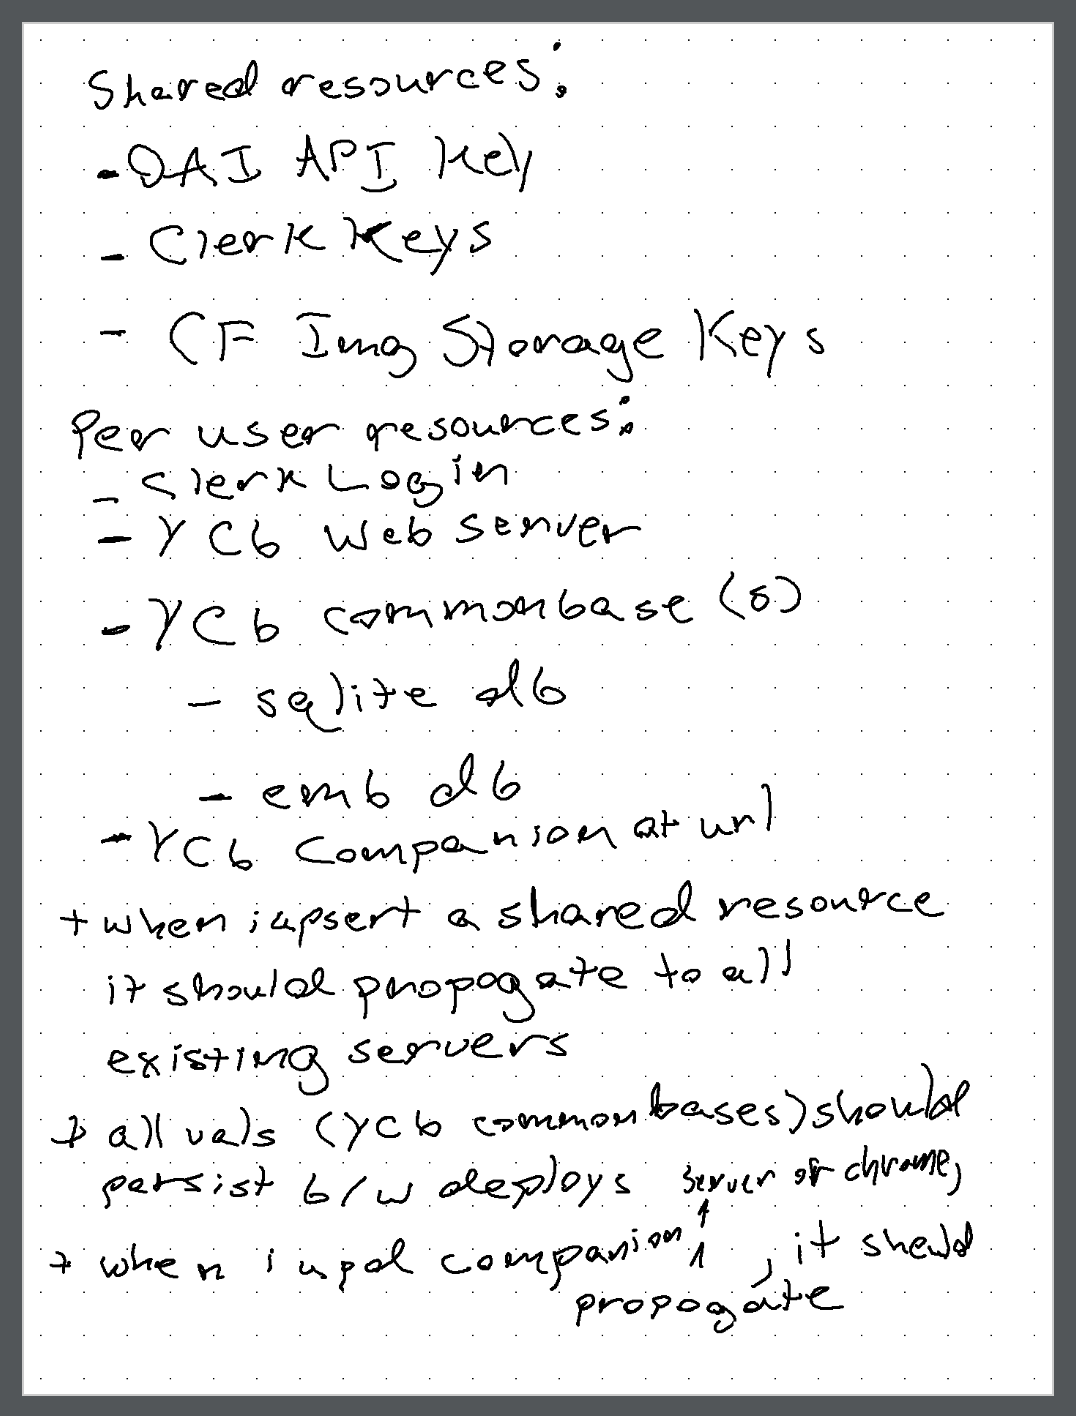 Shared resources:
- OAI API Key
- Clerk Keys
- CF Img Storage Keys
Per user resources:
- Clerk Login
- YCb Web server
- YCb commonbase(s)
- sqlite db
- emb db
- YCb Companion at url
+ when i upsert a shared resource
it should propogate to all
existing servers
+ all vals (YCb commonbases) should
persist b/w deploys
server or chrome,
+ when i upd companion, it should
propogate